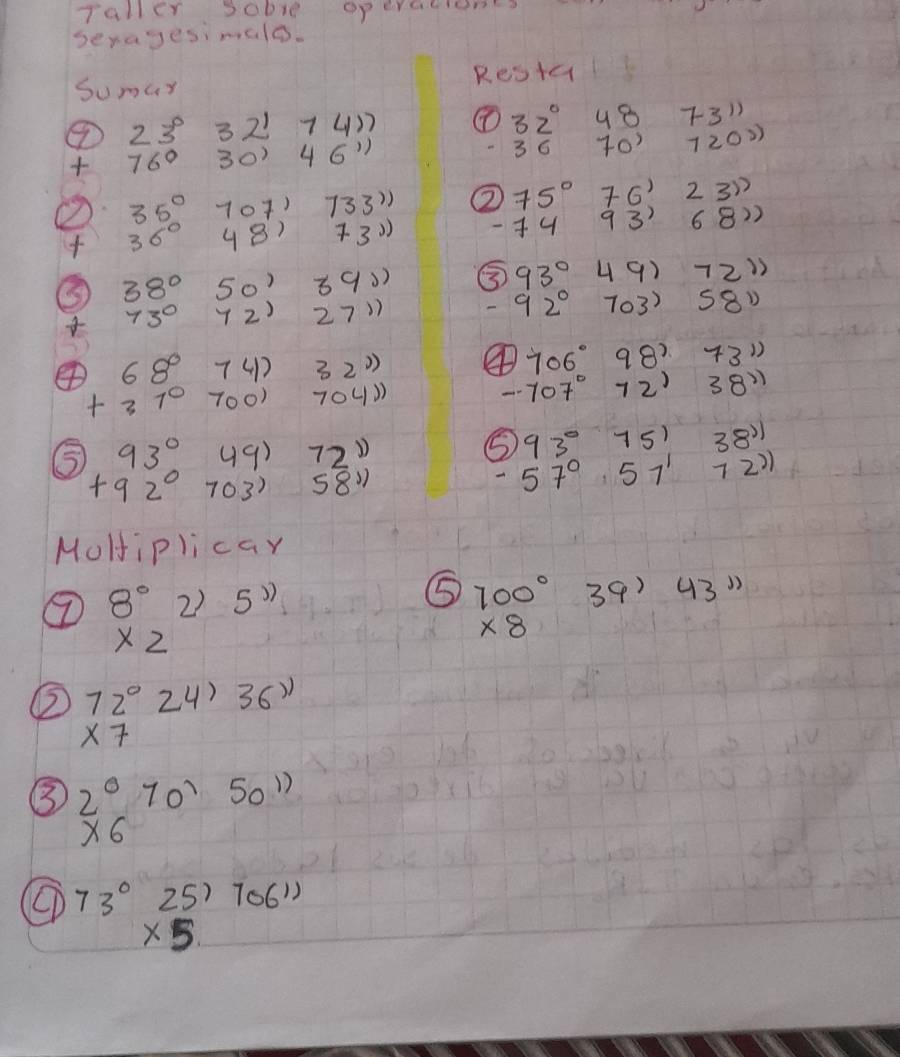 Taller sobre operaciones
sexagesimales.
Sumar
① 23° 32' 14''
+ 16° 30' 46''
② 35° 107' 133''
+ 36° 48' 13''
③ 38° 50' 39''
+ 13° 12' 27''
④ 68° 14' 32''
+ 31° 100' 104''
⑤ 93° 49' 12''
+ 92° 103' 58''
Resta
① 32° 48 13''
- 36 10' 120''
② 15° 16' 23''
- 14 93' 68''
③ 93° 49' 12''
- 92° 103' 58''
④ 106° 98' 13''
- 107° 12' 38''
⑤ 93° 15' 38''
- 57° 51' 12''
Multiplicar
① 8° 2' 5''
x 2
② 12° 24' 36''
x 7
③ 2° 10' 50''
x 6
④ 13° 25' 106''
x 5
⑤ 100° 39' 43''
x 8